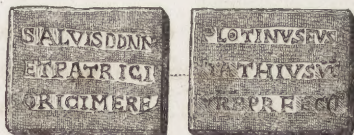 SALVISDDNN
ETPATRICI
ORICIMERE
PLOTINVSEVS
TATHIVSVI
VRBPRFECIT